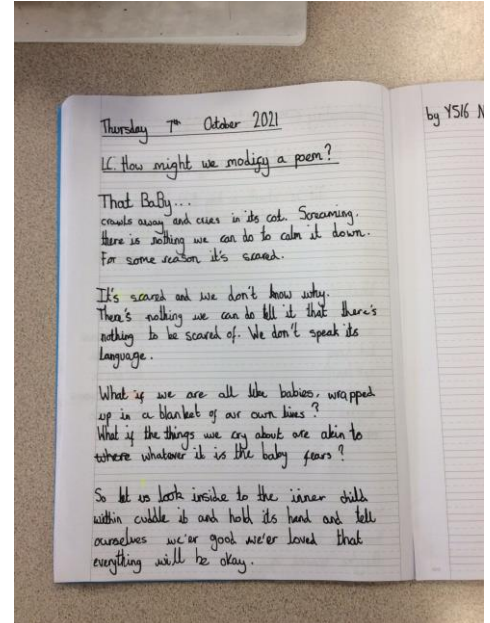 Thursday 7th October 2021
LC. How might we modify a poem?
That BaBy...
crawls away and cries in its cot. Screaming.
there is nothing we can do to calm it down.
For some reason it's scared.
It's scared and we don't know why.
There's nothing we can do tell it that there's
nothing to be scared of. We don't speak its
language.
What if we are all like babies, wrapped
up in a blanket of our own lives?
What if the things we cry about are akin to
where whatever it is the baby fears?
So let us look inside to the inner child
within cuddle it and hold its hand and tell
ourselves we'er good we'er loved that
everything will be okay.
by Y5/6 N